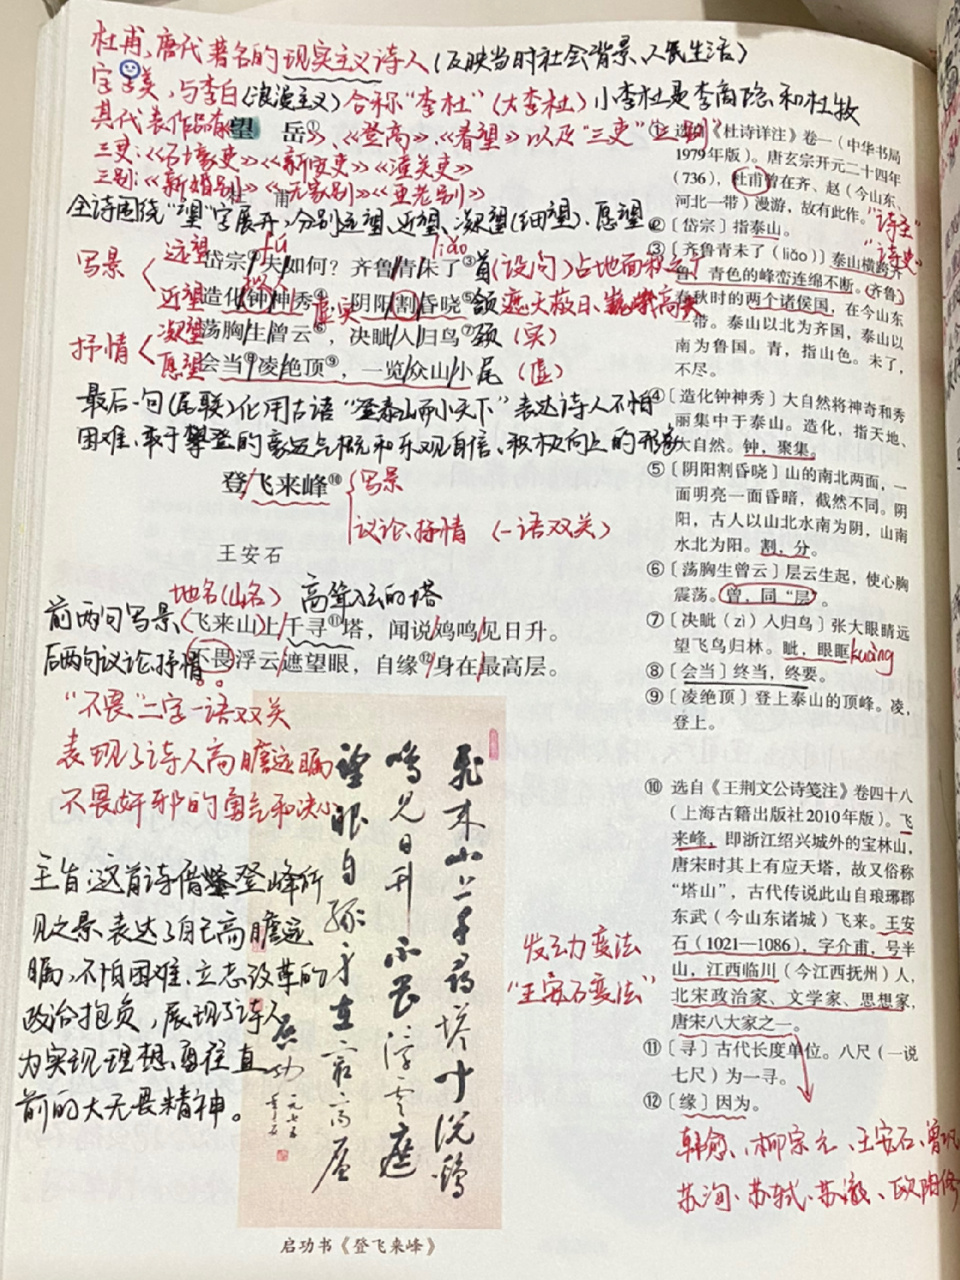 杜甫，唐代著名的现实主义诗人（反映当时社会背景、人民生活）
字子美，与李白（浪漫主义）合称“李杜”（大李杜）小李杜是李商隐和杜牧
其代表作品有
望 岳①
、《登高》、《春望》以及“三吏”“三别”
三吏：《石壕吏》《新安吏》《潼关吏》
三别：《新婚别》《无家别》《垂老别》
杜 甫
全诗围绕“望”字展开，分别远望、近望、凝望（细望）、愿望
写景
抒情
远望
近望
凝望
愿望
fú
liǎo
岱宗②夫如何？齐鲁青未了③
首（设问）
造化钟神秀④，阴阳割昏晓⑤
虚实
颔 遮天蔽日
荡胸生曾云⑥，决眦入归鸟⑦
颈（实）
会当⑧凌绝顶⑨，一览众山小
尾（虚）
最后一句（尾联）化用古语“登泰山而小天下”表达诗人不怕
困难、敢于攀登的豪迈气概和乐观自信、积极向上的形象
登飞来峰⑩
写景
议论、抒情（一语双关）
王安石
地名（山名） 高耸入云的塔
前两句写景
飞来山上千寻⑪塔，闻说鸡鸣见日升。
后两句议论、抒情
不畏浮云遮望眼，自缘⑫身在最高层。
“不畏”二字一语双关
表现了诗人高瞻远瞩
不畏奸邪的勇气和决心
主旨：这首诗借登峰所
见之景，表达了自己高瞻远
瞩，不怕困难、立志改革的
政治抱负，展现了诗人
为实现理想，勇往直
前的大无畏精神。
飞来山上千寻塔闻说鸡
鸣见日升不畏浮云遮
望眼自缘身在最高层
启功
启功书《登飞来峰》
① 选自《杜诗详注》卷一（中华书局
1979年版）。唐玄宗开元二十四年
（736），杜甫曾在齐、赵（今山东、
河北一带）漫游，故有此作。
“诗圣”
“诗史”
②〔岱宗〕指泰山。
③〔齐鲁青未了（liǎo）〕泰山横跨齐
鲁，青色的峰峦连绵不断。（齐鲁）
春秋时的两个诸侯国，在今山东
一带。泰山以北为齐国，泰山以
南为鲁国。青，指山色。未了，
不尽。
④〔造化钟神秀〕大自然将神奇和秀
丽集中于泰山。造化，指天地、
大自然。钟，聚集。
⑤〔阴阳割昏晓〕山的南北两面，一
面明亮一面昏暗，截然不同。阴
阳，古人以山北水南为阴，山南
水北为阳。割，分。
⑥〔荡胸生曾云〕层云生起，使心胸
震荡。曾，同“层”。
⑦〔决眦（zì）入归鸟〕张大眼睛远
望飞鸟归林。眦，眼眶
kuàng
⑧〔会当〕终当，终要。
⑨〔凌绝顶〕登上泰山的顶峰。凌，
登上。
⑩ 选自《王荆文公诗笺注》卷四十八
（上海古籍出版社2010年版）。飞
来峰，即浙江绍兴城外的宝林山，
唐宋时其上有应天塔，故又俗称
“塔山”，古代传说此山自琅琊郡
东武（今山东诸城）飞来。王安
石（1021—1086），字介甫，号半
山，江西临川（今江西抚州）人，
北宋政治家、文学家、思想家，
唐宋八大家之一。
发动变法
“王安石变法”
⑪〔寻〕古代长度单位。八尺（一说
七尺）为一寻。
⑫〔缘〕因为。
韩愈、柳宗元、王安石、曾巩
苏洵、苏轼、苏澈、欧阳修